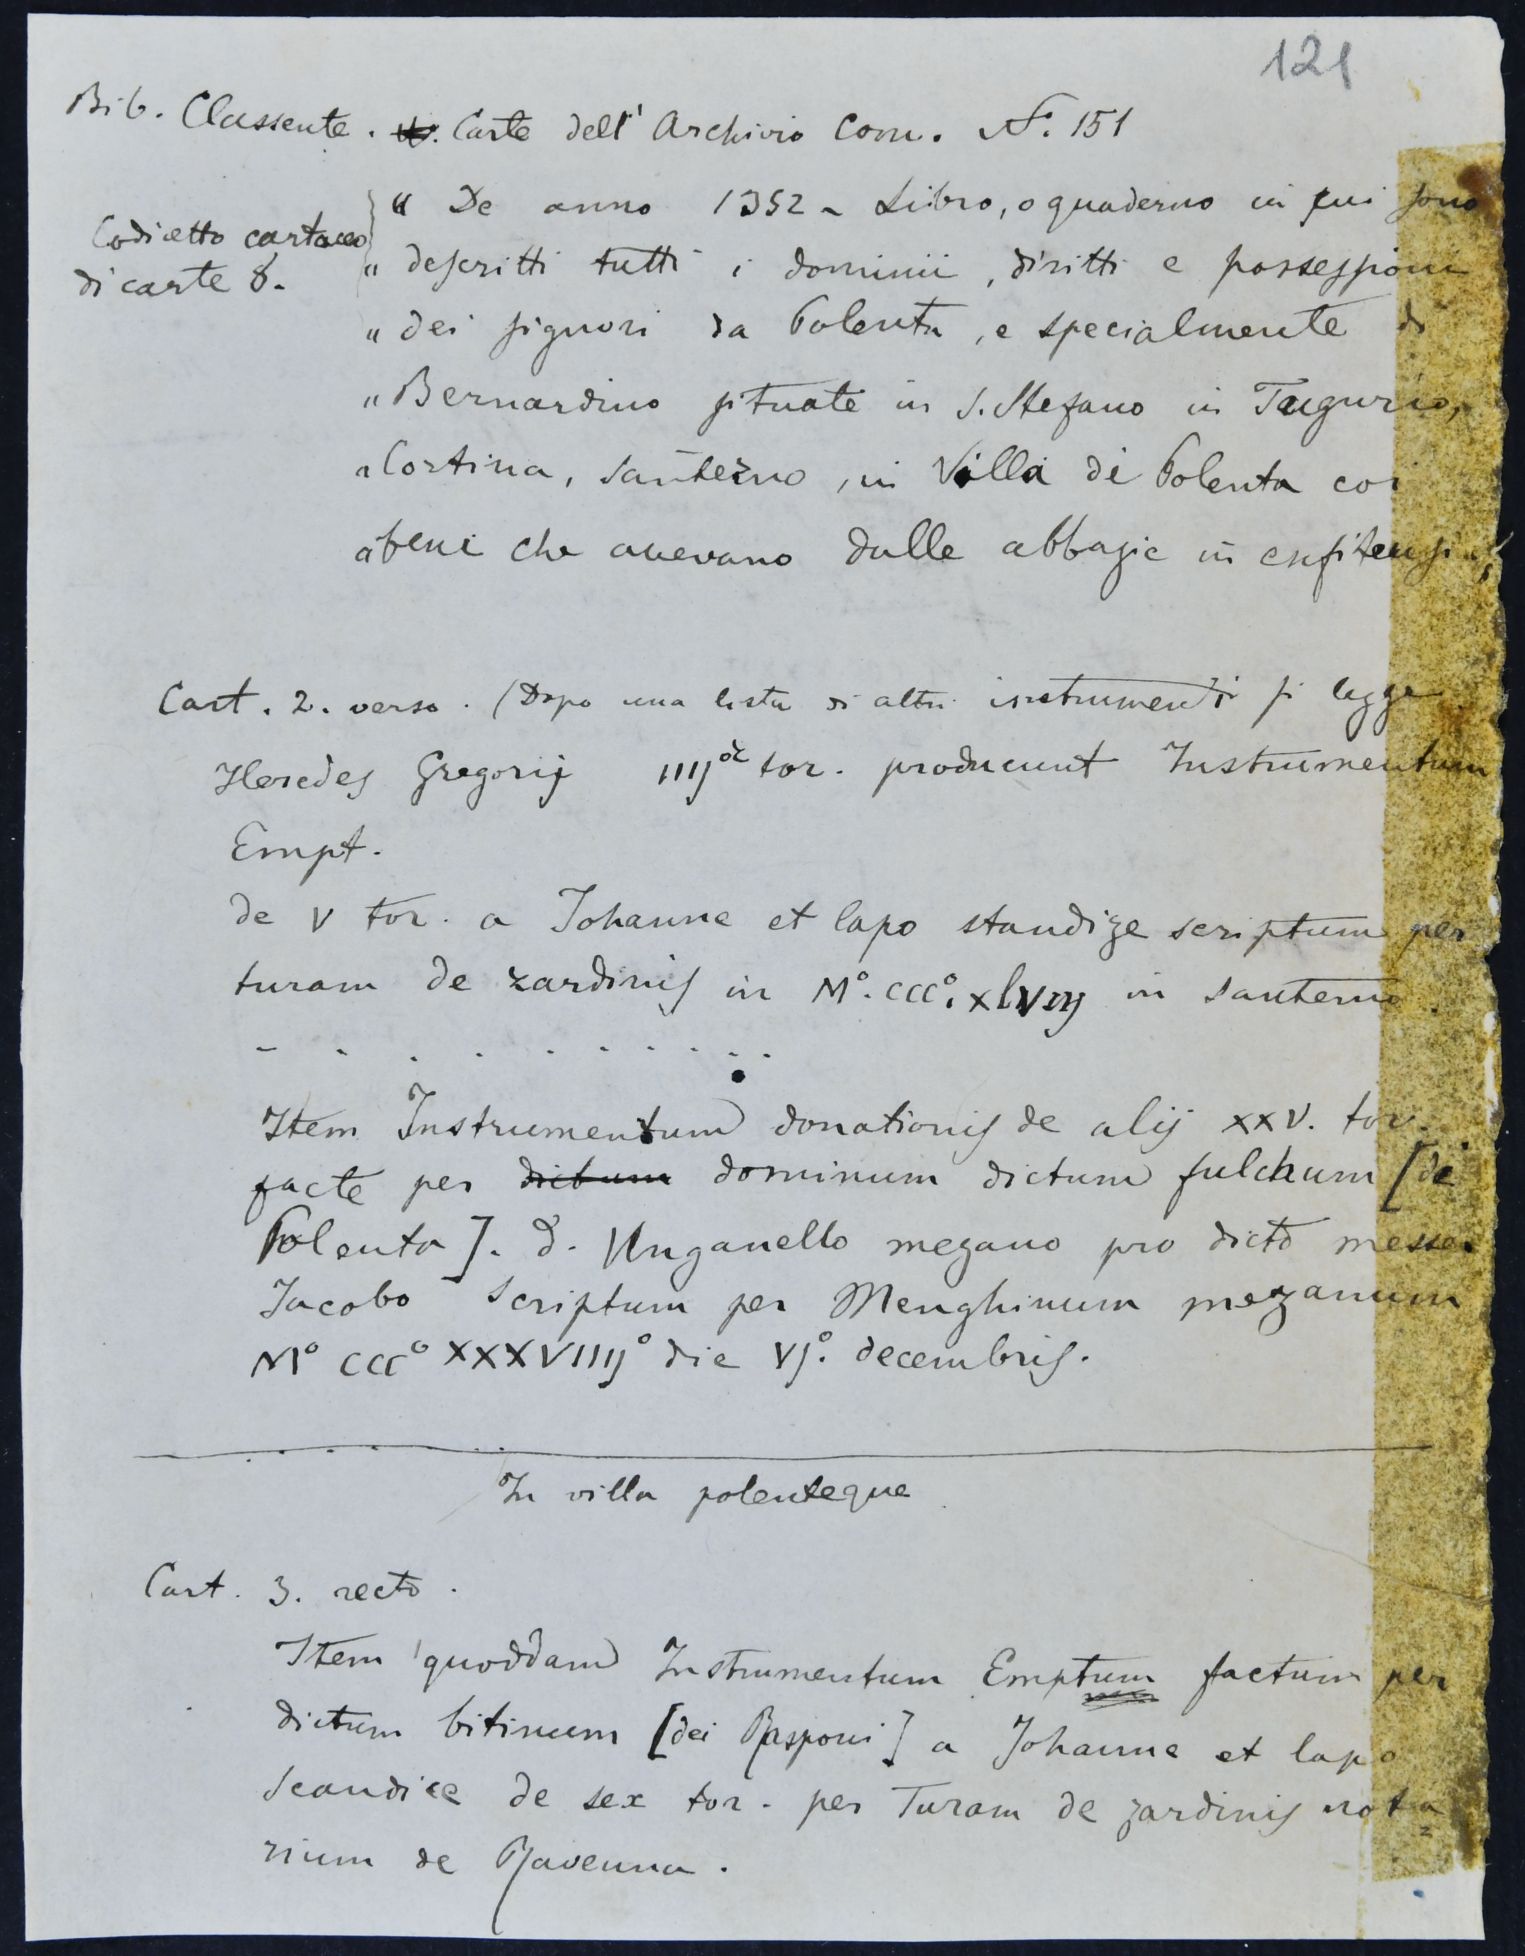 121
Bib. Classente. Carte dell' Archivio Com. N. 151
Codicetto cartaceo
di carte 8.
" De anno 1352 - Libro, o quaderno in qui sono
" descritti tutti i dominii, diritti e possessioni
" dei signori da Polenta, e specialmente di
" Bernardino situate in S. Stefano in Tegurio,
" Cortina, Santerno, in Villa di Polenta coi
" beni che avevano dalle abbazie in enfiteusi
Cart. 2. verso. (Dopo una lista di altri instrumenti si legge
Heredes Gregorij IIIJ or tor. producunt Instrumentum
Empt.
de V tor. a Johanne et lapo standize scriptum per
turam de zardinis in M°. CCC°. xlviij in Santerno
- . . . . . . . . . . .
Item Instrumentum donationis de alijs XXV. tor.
facte per dictum dominum dictum fulchum [di
Polenta]. d. Unganello mezano pro dicto messer
Jacobo scriptum per Menghinum mezanum
M° CCC° XXXVIIIJ° die VJ°. decembris.
In villa polenteque
Cart. 3. recto.
Item quoddam Instrumentum Emptum factum per
dictum bitinum [dei Rasponi] a Johanne et lapo
Scandice de sex tor. per Turam de zardinis nota
rium de Ravenna.